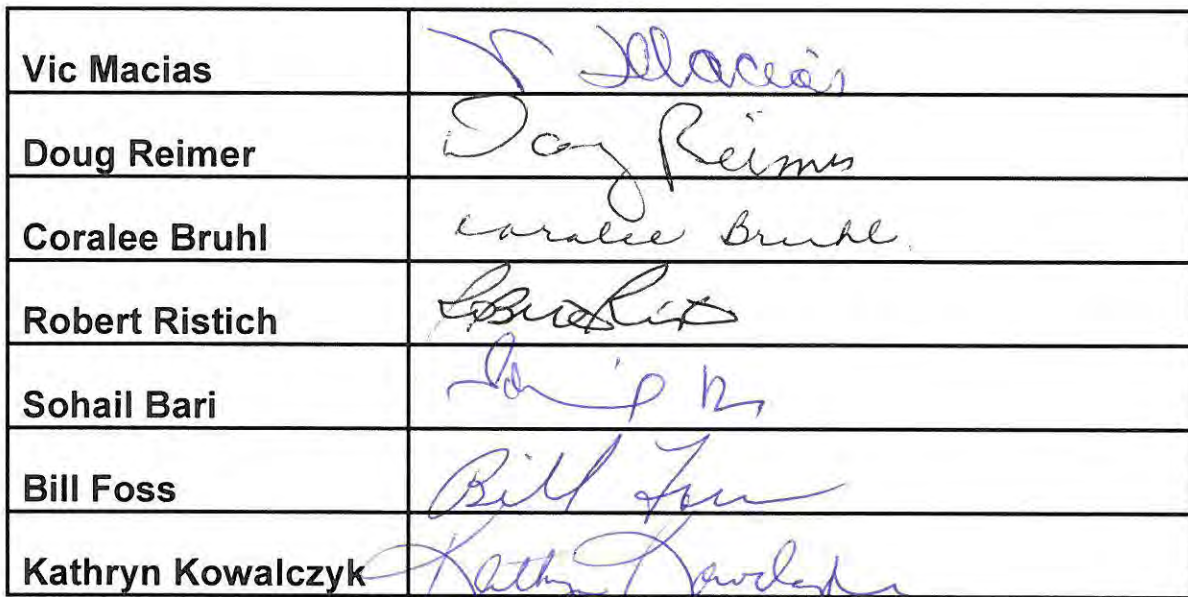 Vic Macias V Macias
Doug Reimer Doug Reimer
Coralee Bruhl Coralee Bruhl
Robert Ristich
Sohail Bari
Bill Foss Bill Foss
Kathryn Kowalczyk Kathryn